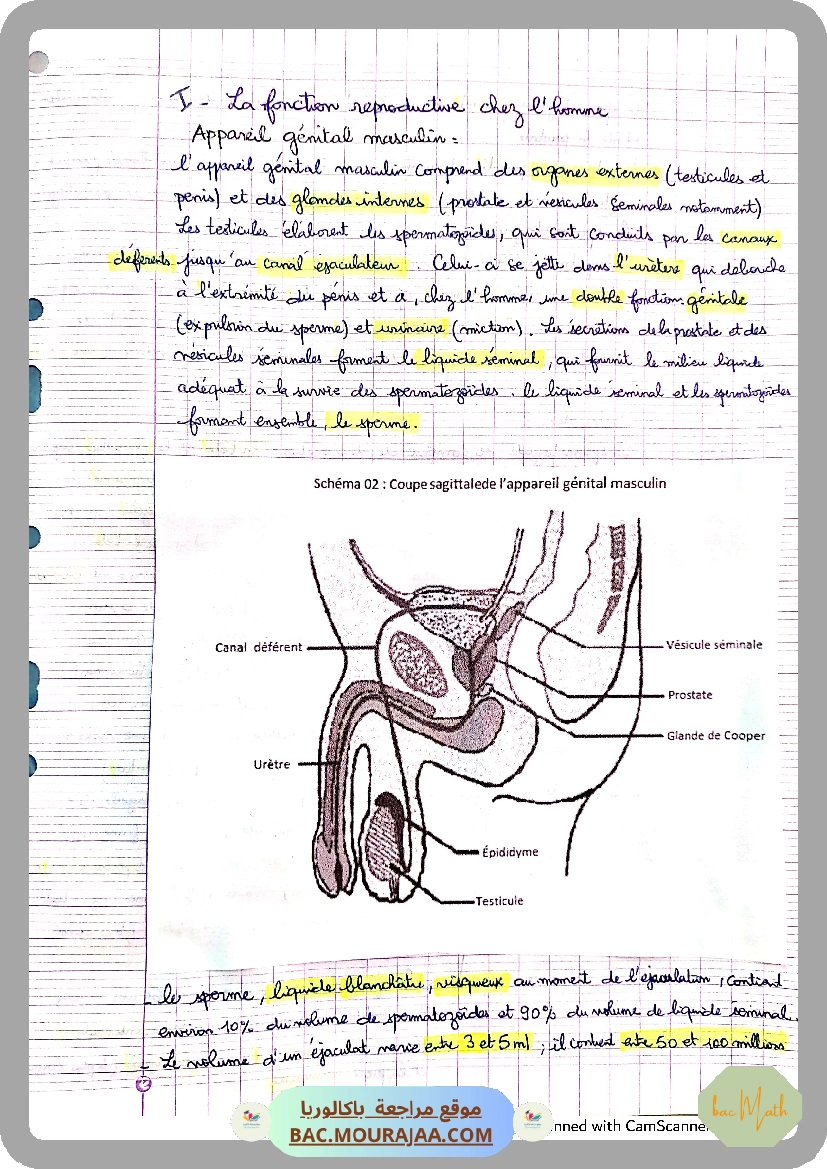 I - La fonction reproductive chez l'homme
Appareil génital masculin :
l'appareil génital masculin comprend des organes externes (testicules et
penis) et des glandes internes (prostate et vésicules séminales notamment)
Les testicules élaborent les spermatozoïdes, qui sont conduits par les canaux
déférents jusqu'au canal ejaculateur. Celui-ci se jette dans l'urètere qui debouche
à l'extrémité du pénis et a, chez l'homme, une double fonction: génitale
(expulsion du sperme) et urinaire (miction). Les secrétions de la prostate et des
vésicules séminales forment le liquide séminal, qui fournit le milieu liquide
adéquat à la survie des spermatozoïdes. le liquide séminal et les spermatozoïdes
forment ensemble, le sperme.
Schéma 02 : Coupe sagittalede l'appareil génital masculin
Canal déférent
Vésicule séminale
Prostate
Glande de Cooper
Urètre
Épididyme
Testicule
- le sperme, liquide blanchâtre, visqueux au moment de l'éjaculation, contient
environ 10% du volume de spermatozoïdes et 90% du volume de liquide séminal.
- Le volume d'un éjaculat varie entre 3 et 5 ml ; il contient entre 50 et 100 millions
موقع مراجعة باكالوريا
BAC.MOURAJAA.COM
nned with CamScanner
bac Math